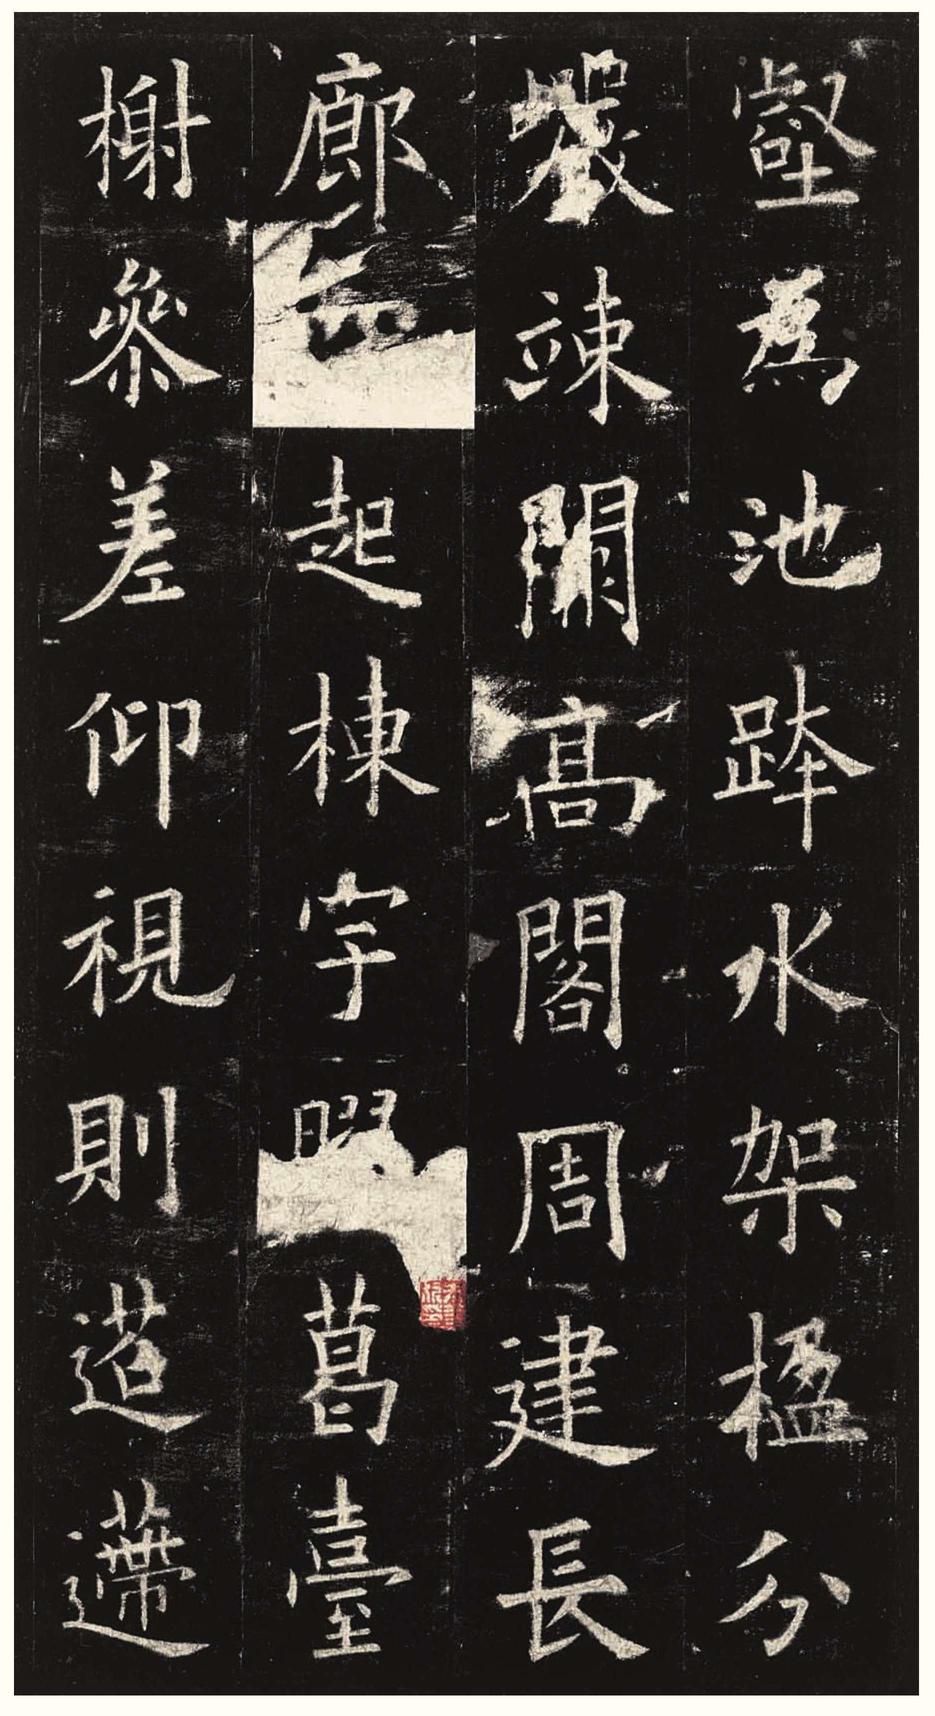 壑為池跨水架楹分
巖竦闕高閣周建長
廊起棟宇膠葛臺
榭參差仰視則迢遰